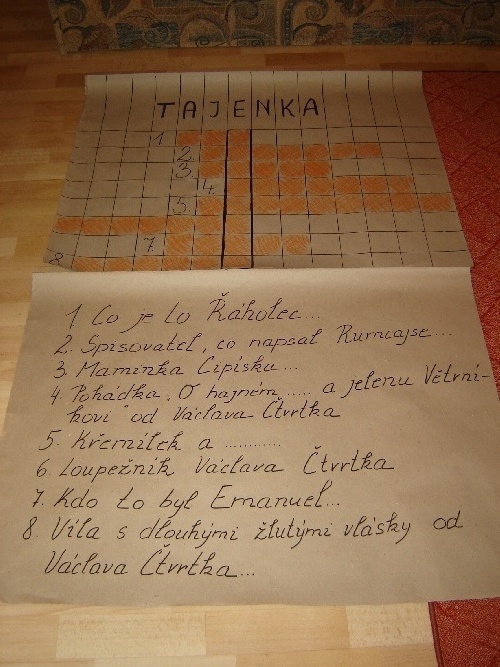 TAJENKA
1
2.
3.
4
5.
7.
8.
1 Co je to Řáholec...
2. Spisovatel, co napsal Rumcajse...
3. Maminka Cipíska...
4. Pohádka „O hajném ..... a jelenu Větrní-
kovi" od Václava Čtvrtka
5. Křemílek a ...........
6. Loupežník Václava Čtvrtka
7. Kdo to byl Emanuel...
8. Víla s dlouhými žlutými vlásky od
Václava Čtvrtka...